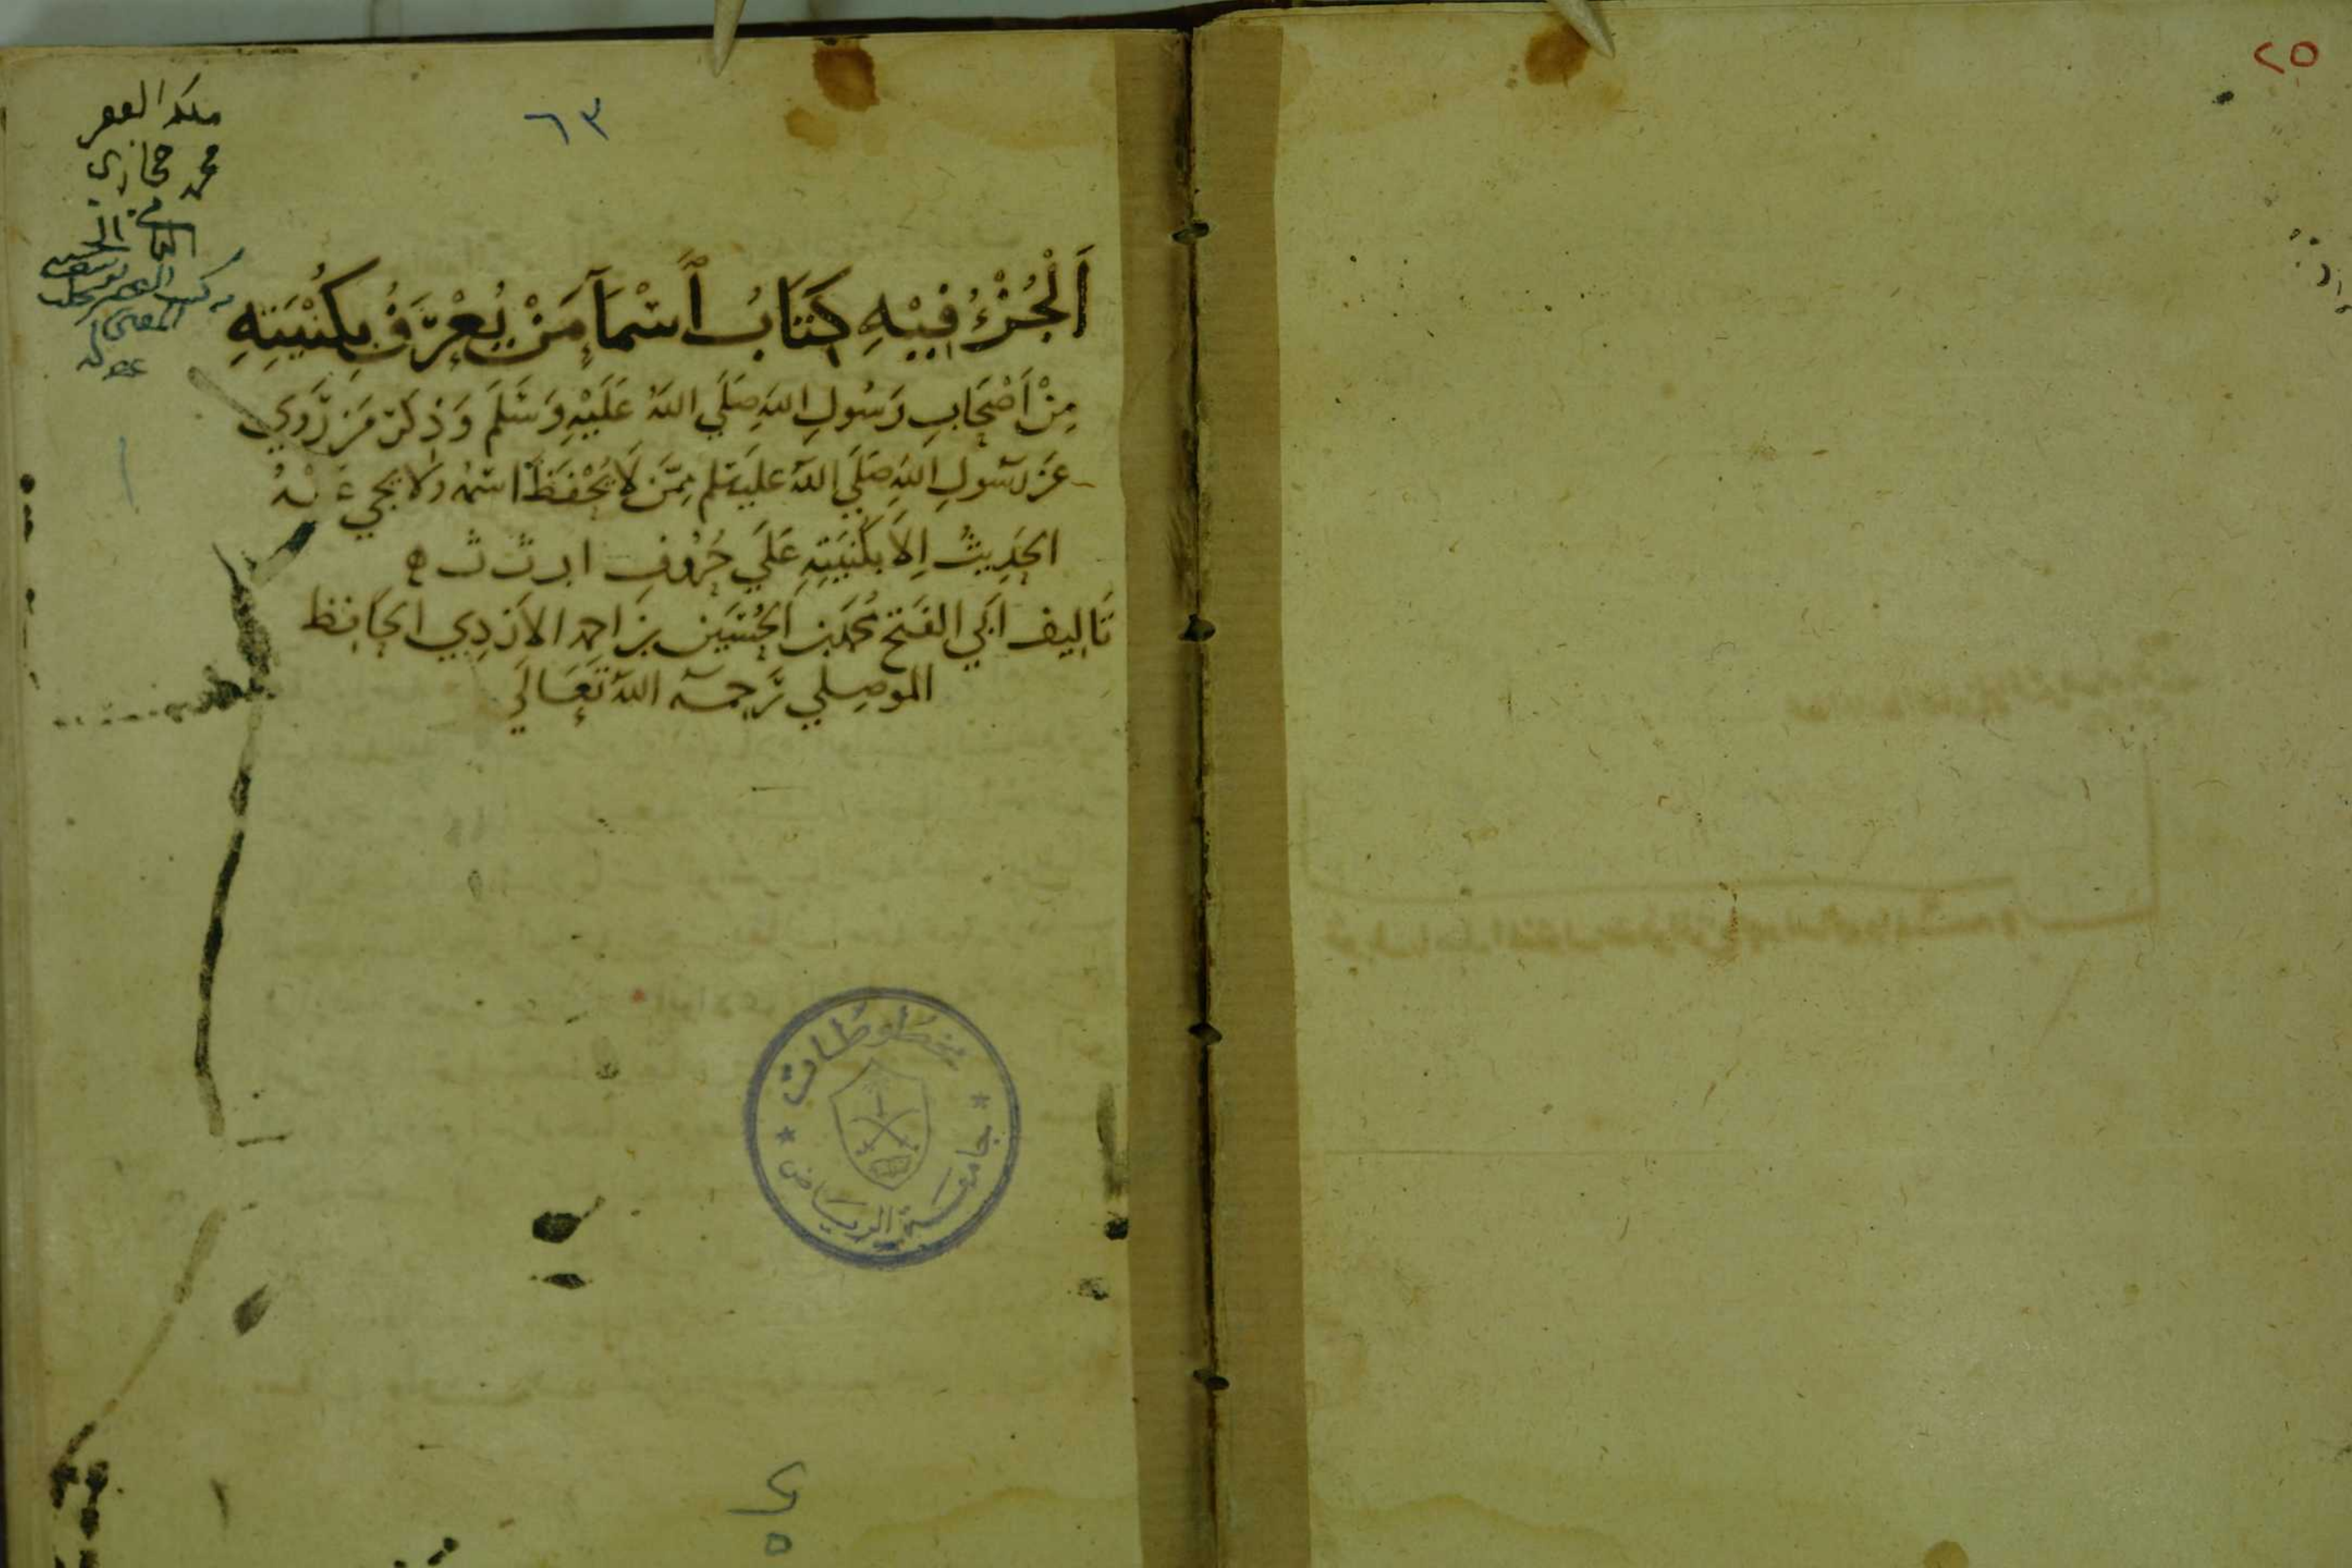 ٢٥
٦٣
ملكه الفقير
محمد حجازي
اَلْجُزْءُ فِيْهِ كِتَابُ اَسْمَآءِ مَنْ يُعْرَفُ بِكُنْيَتِهِ
مِنْ اَصْحَابِ رَسُولِ اللهِ صَلَّي اللهُ عَلَيْهِ وَسَلَّمَ وَذِكْرُ مَنْ رَوَي
عَنْ رَسُولِ اللهِ صَلَّي اللهُ عليه وسلم مِمَّنْ لَا يُحْفَظُ اسْمُهُ ولا يجيء عَنْهُ
الحَدِيثُ اِلَّا بِكُنْيَتِهِ عَلَي حُرُوْفِ ا ب ت ث
تَاليف اَبي الفَتْح مُحَمَّد بن الحُسَيْن بن احمد الازدِي الحَافِظ
الموصِلي رَحِمَهُ اللهُ تَعَالَي
مخطوطات
جامعة الرياض
٢
٥